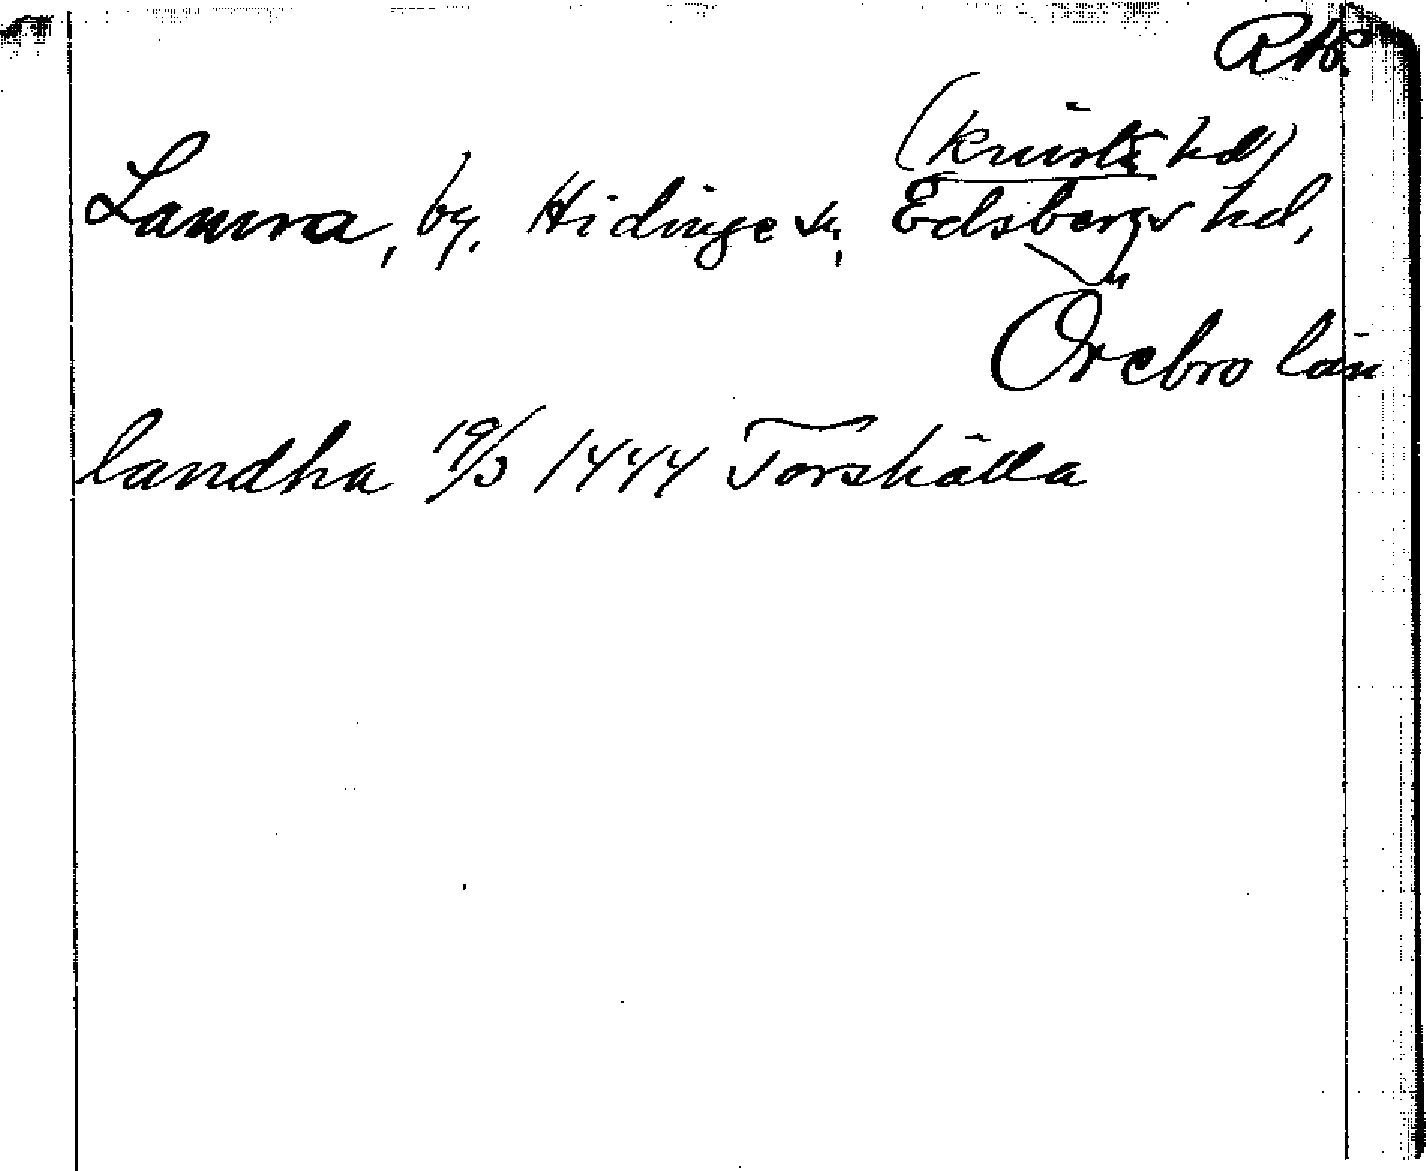 RAp.
(Knista hd)
Lanna, by, Hidinge sn, Edsbergs hd,
Örebro län
landha 19/3 1444 Torshälla